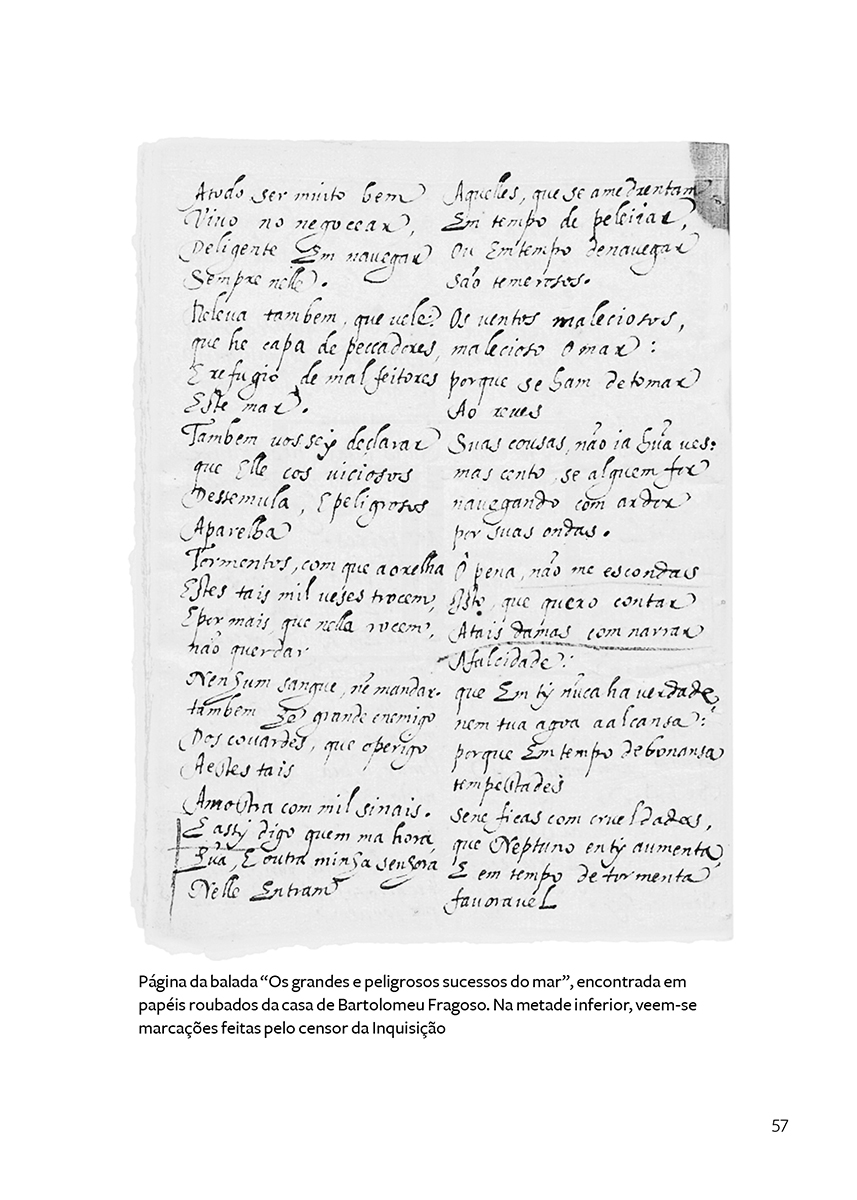 Atodo ser muito bem
Vivo no negocear,
Deligente Em navegar
Sempre nelle.
Releva tambem, que vele:
que he capa de peccadores,
E refugio de malfeitores
Este mar.
Tambem vos sey declarar
que Elle cos viciosos
Destemula, E peligrosos
Aparelha
Tormentos, com que a orelha
Estes tais mil veses trocem,
E por mais, que nella rocem,
não querdar
Nenhum sangue, nẽ mandar.
tambem he grande enemigo
Dos couardes, que o perigo
Aestes tais
Amostra com mil sinais.
E assy digo quem ma hora
hũa, E outra minha senhora
Nelle Entram
Aquelles, que se amedrentam
Em tempo de peleijar,
Ou Em tempo denavegar
são temerosos.
Os ventos maleciosos,
malecioso O mar:
porque se ham detomar
Ao reves
Suas cousas, não ia hũa ves:
mas cento, se alguem for
navegando com ardor
por suas ondas.
Ó pena, não me escondas
Isto, que quero contar
Atais damas com narrar
Afalcidade:
que Em ty nũca ha verdade,
nem tua agoa aalcansa:
porque Em tempo debonansa
tempestades
sene ficas com crueldades,
que Neptuno enty aumenta,
E em tempo de tormenta
favoravel
Página da balada “Os grandes e peligrosos sucessos do mar”, encontrada em
papéis roubados da casa de Bartolomeu Fragoso. Na metade inferior, veem-se
marcações feitas pelo censor da Inquisição
57